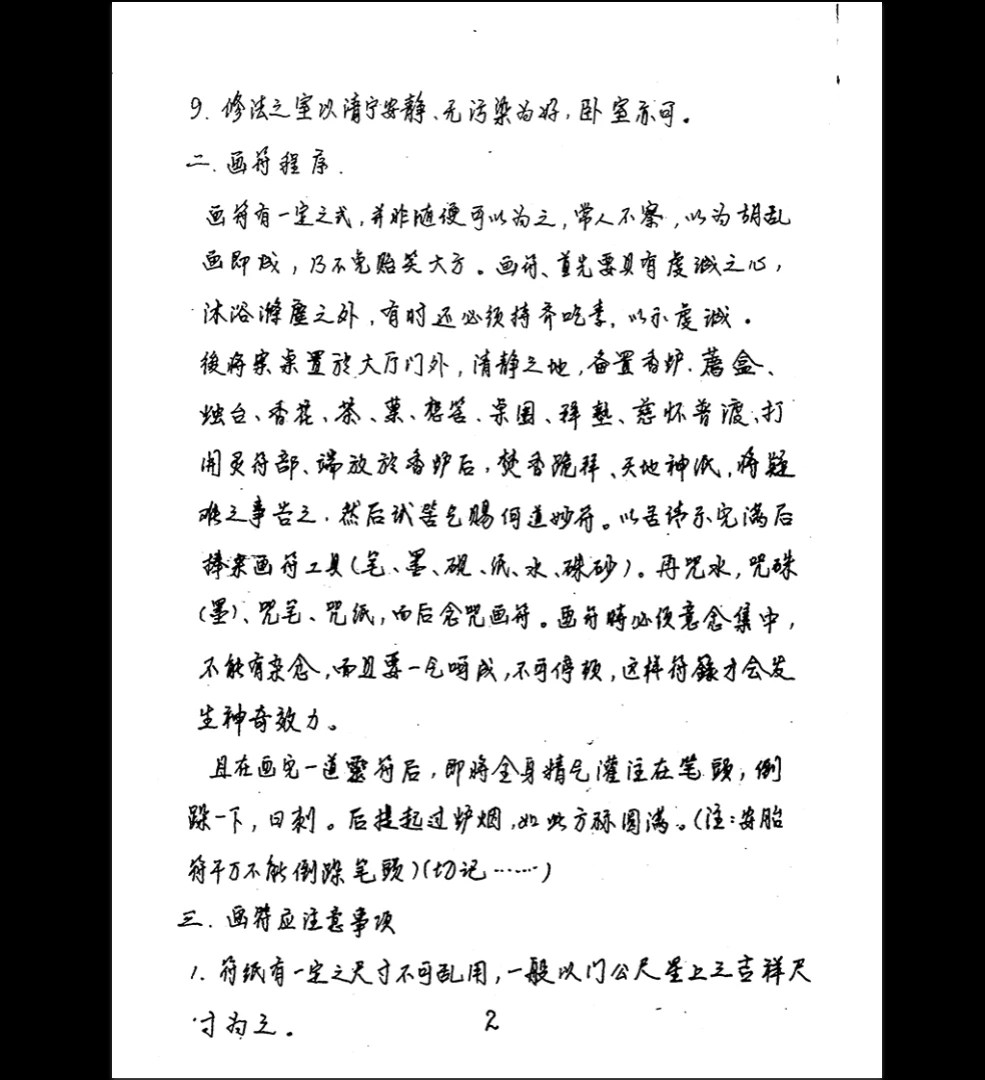 9. 修法之室以清宁安静、无污染为好,卧室亦可。
二. 画符程序.
画符有一定之式,并非随便可以为之,常人不察,以为胡乱
画即成,乃不免贻笑大方。画符、首先要具有虔诚之心,
沐浴滌塵之外,有时还必须持齐吃素,以示虔诚.
後将案桌置於大厅门外,清静之地,备置香炉.蘑盒、
烛台、香花、茶、菓、筶、桌围、拜墊、慈怀普渡、打
開灵符部、端放於香炉后,焚香跪拜、天地神祇,将疑
难之事告之.然后试筶乞赐何道妙符。以筶请示完满后
捧案画符工具(笔、墨、砚、纸、水、硃砂)。再咒水,咒硃
(墨)、咒笔、咒纸,而后念咒画符。画符時必须意念集中,
不能有杂念,而且要一气呵成,不可停顿,这样符籙才会发
生神奇效力。
且在画完一道靈符后,即将全身精气灌注在笔頭,倒
跺一下,曰刺。后提起过炉烟,如此方称圆满。(注:安胎
符千万不能倒跺笔頭)(切记……)
三. 画符应注意事项
1. 符纸有一定之尺寸不可乱用,一般以门公尺星上之吉祥尺
寸为之。
2